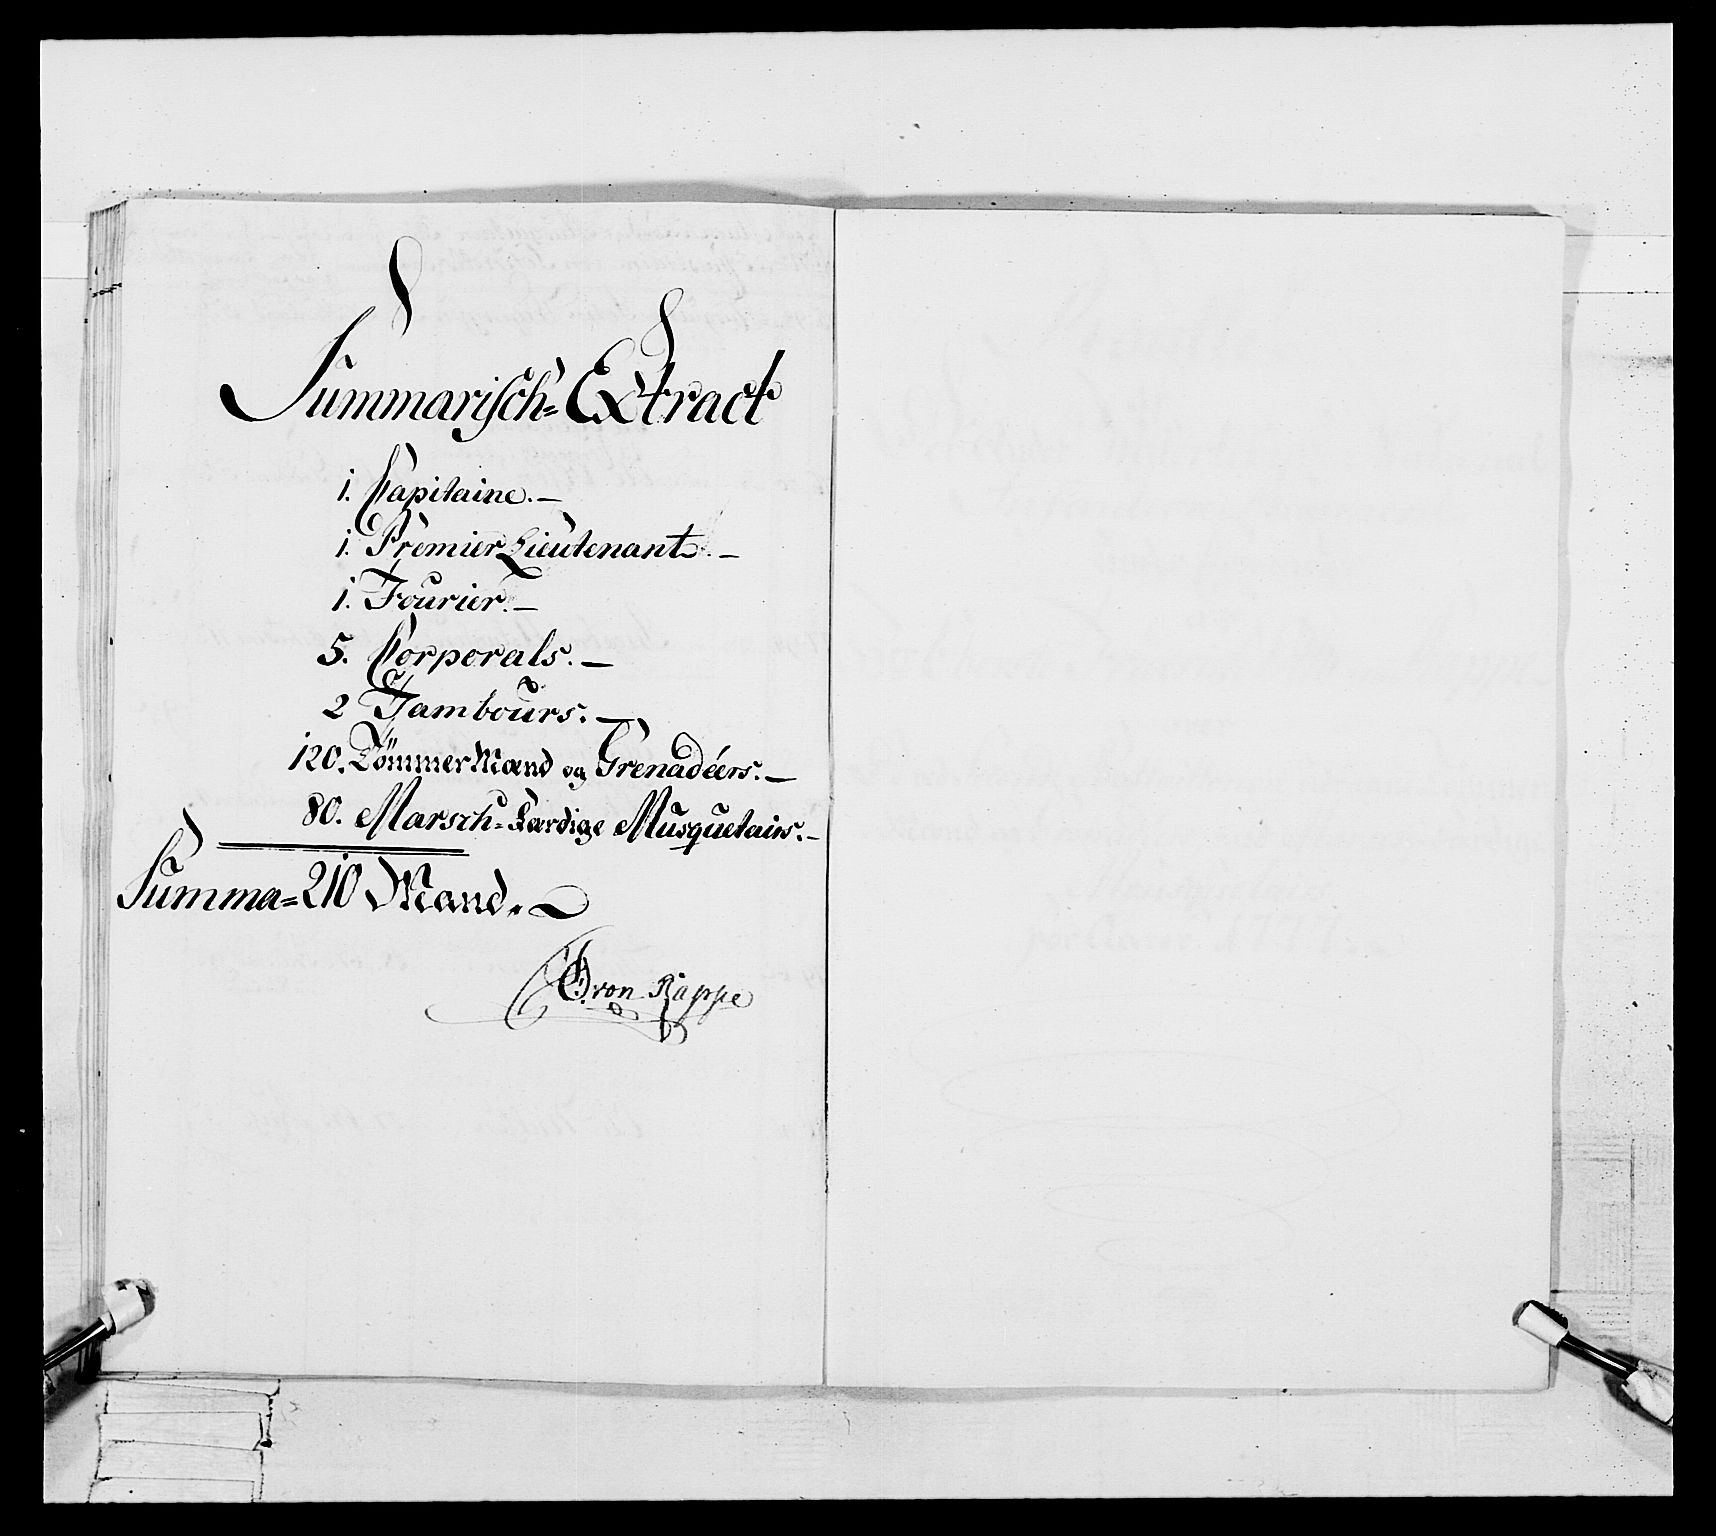 Summarisch= Extract
1. Kapitaine. —
1. Premier Lieutenant. —
1. Fourier. —
5. Korporals. —
2 Tambours. —
120. Tömmer Mand og Grenadéers. —
80. Marsch=Færdige Musquetairs. —
Summa= 210 Mand.
von Rappe